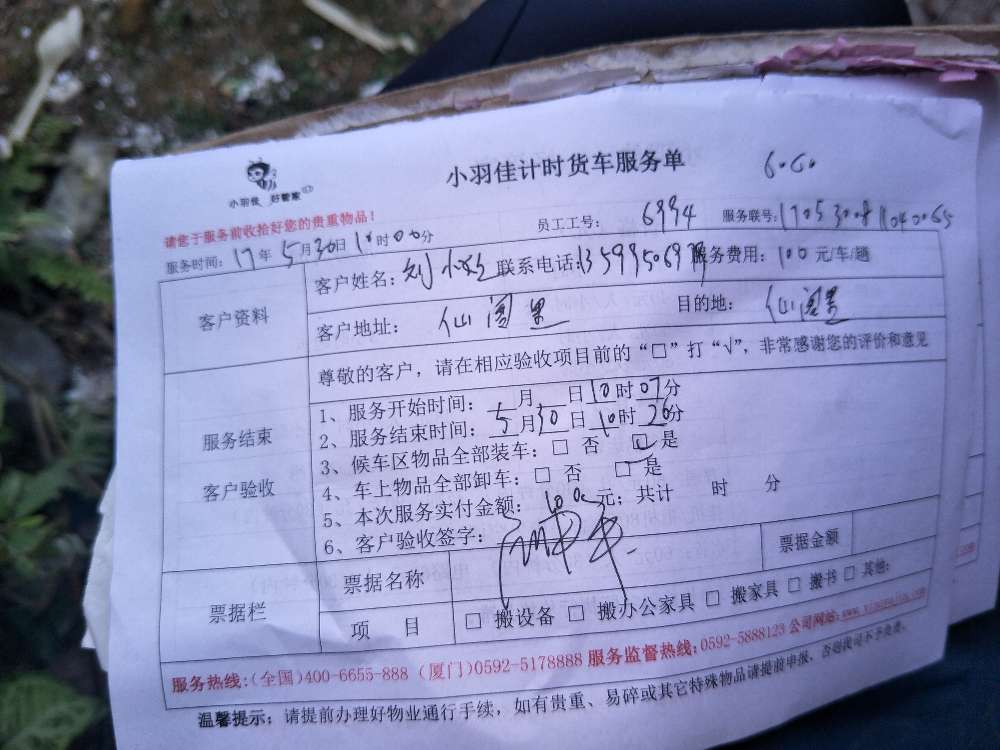 小羽佳计时货车服务单
小羽佳 好管家
请您于服务前收拾好您的贵重物品！
员工工号： 6994 服务联号：
服务时间：17年5月30日10时00分
客户资料
客户姓名： 联系电话： 服务费用：100元/车/趟
客户地址：仙阁里 目的地：仙阁里
尊敬的客户，请在相应验收项目前的“□”打“√”，非常感谢您的评价和意见
服务结束
客户验收
1、服务开始时间： 月 日10时07分
2、服务结束时间：5月30日10时26分
3、候车区物品全部装车：□ 否 □ 是
4、车上物品全部卸车：□ 否 □ 是
5、本次服务实付金额：100元；共计 时 分
6、客户验收签字：
票据栏
票据名称 票据金额
项 目 □ 搬设备 □ 搬办公家具 □ 搬家具 □ 搬书 □ 其他：
服务热线：(全国)400-6655-888 (厦门)0592-5178888 服务监督热线：0592-5888123 公司网站：
温馨提示：请提前办理好物业通行手续，如有贵重、易碎或其它特殊物品请提前申报，否则我司不予负责。